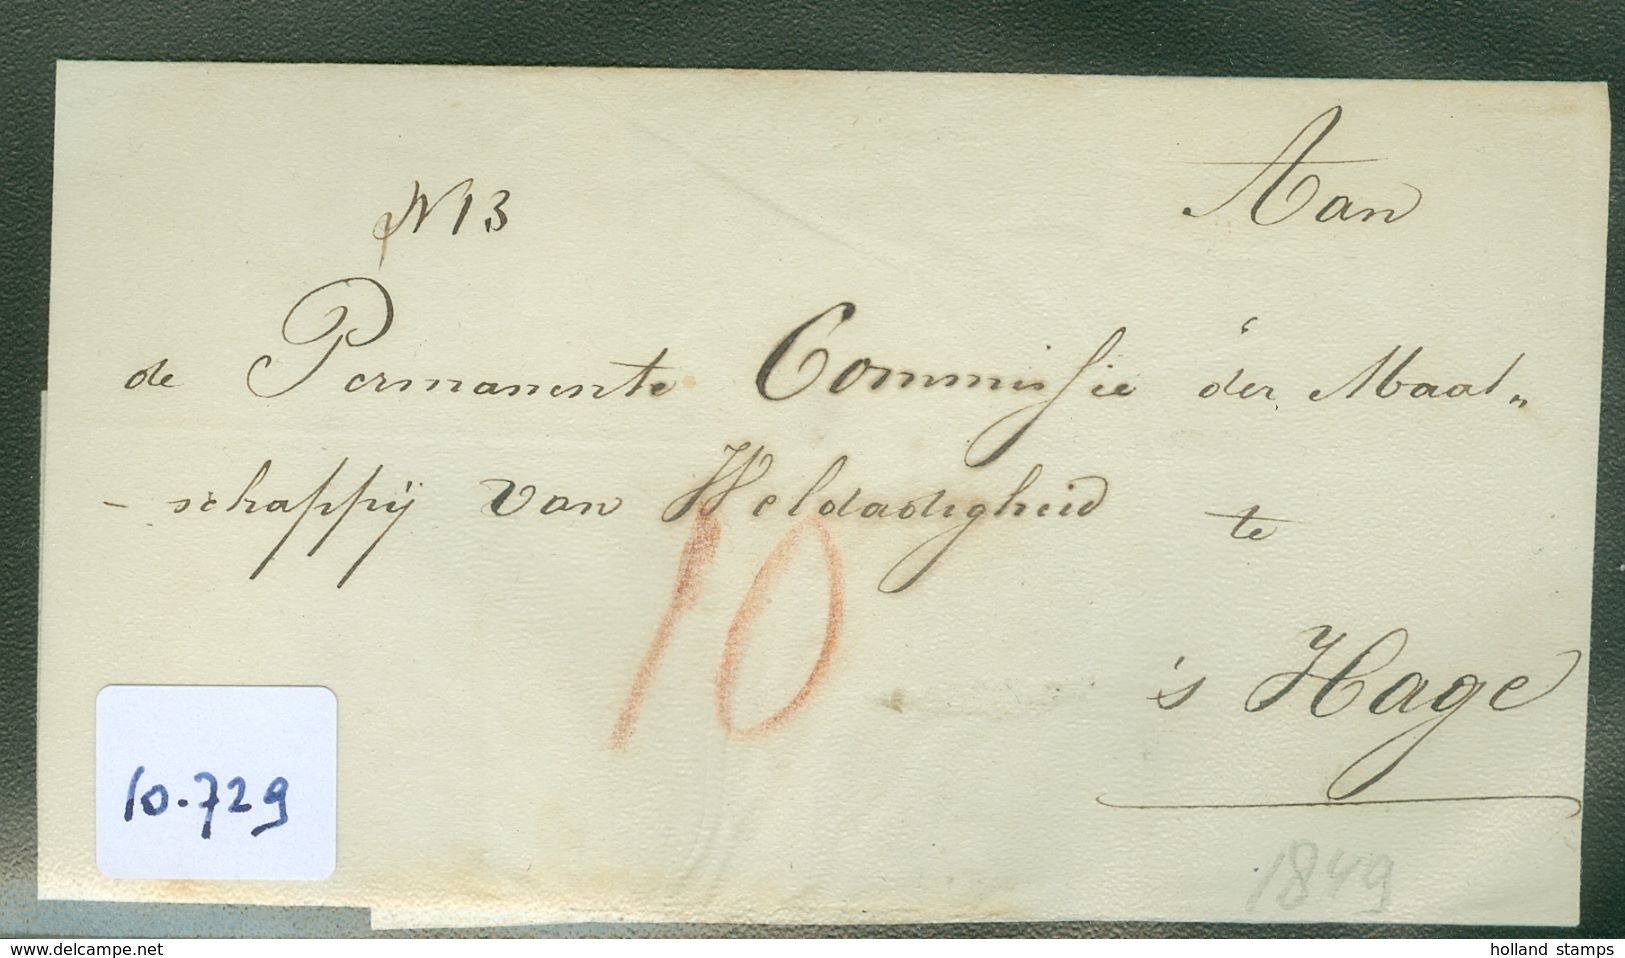 Aan
N 13
de Permanente Commissie der Maat„
– schappij van Weldadigheid te
10
's Hage
10.729
1849
© www.delcampe.net
holland stamps